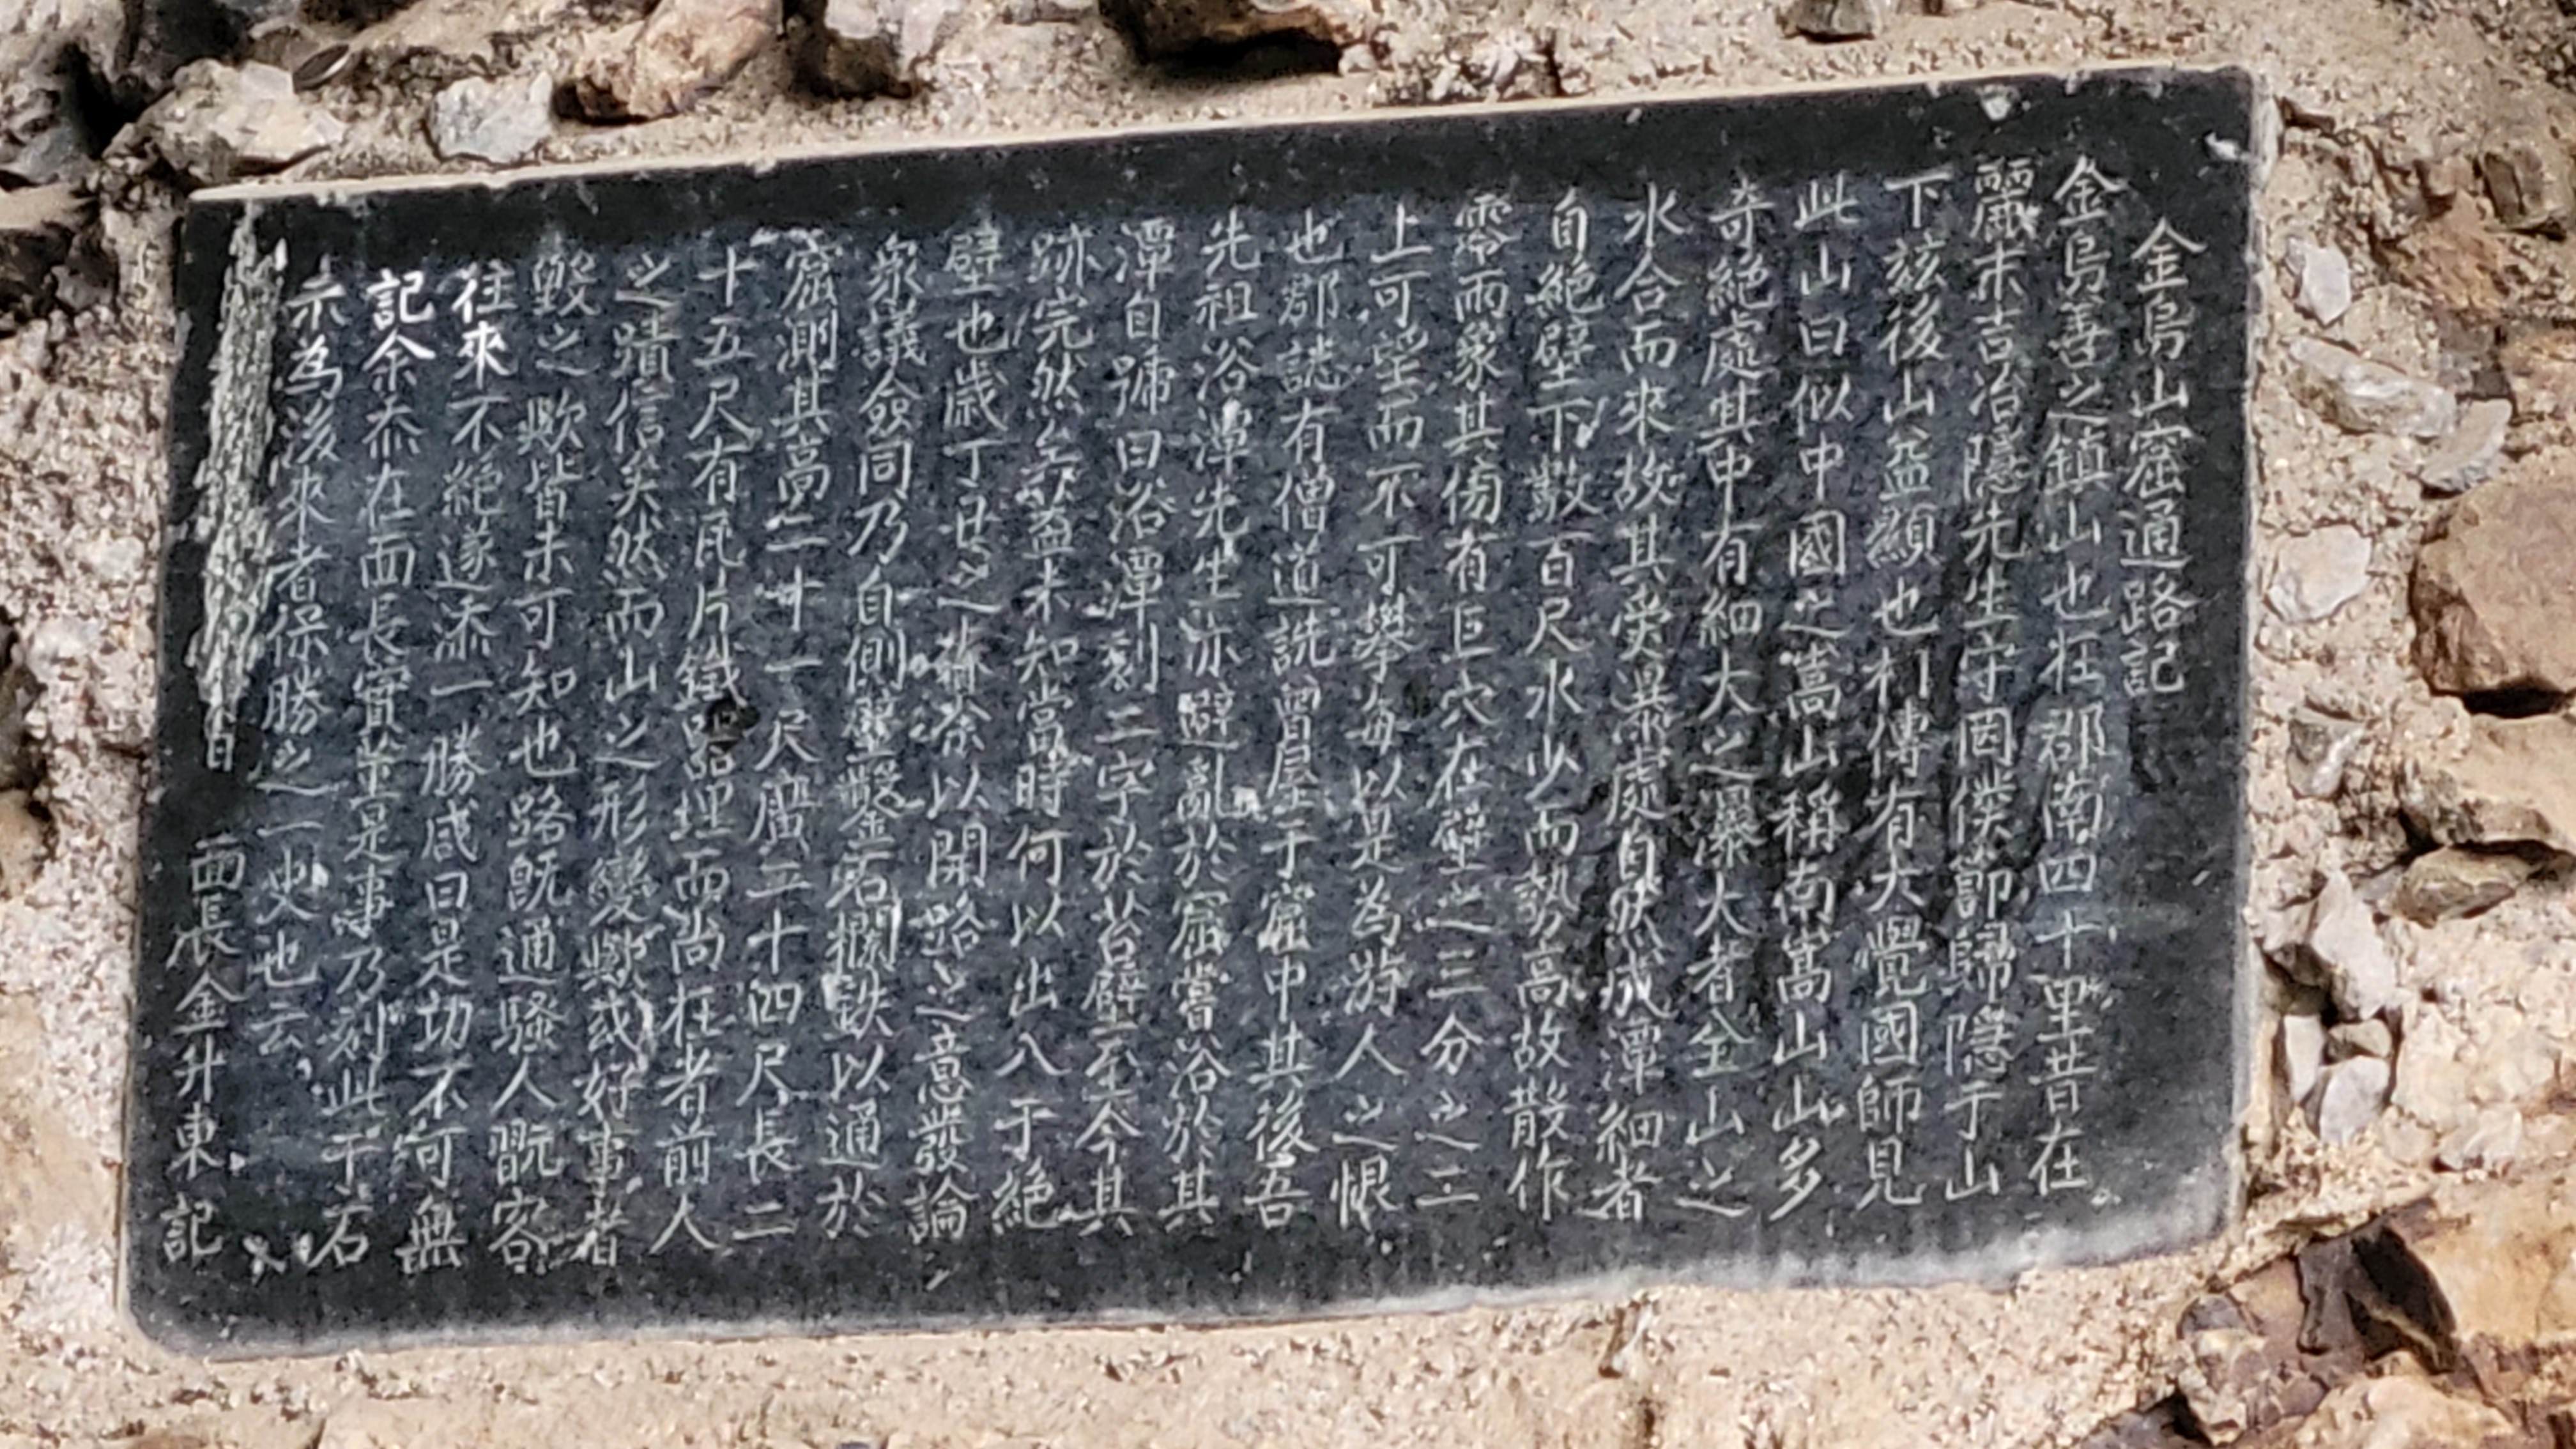 金烏山窟通路記
金烏善之鎮山也在郡南四十里昔在
麗末吉冶隱先生守罔僕節歸隱于山
下玆後山益顯也村傳有大覺國師見
此山曰似中國之嵩山稱南嵩山山多
奇絶處其中有細大之瀑大者全山之
水合而來故其受瀑處自然成潭細者
自絶壁下數百尺水少而勢高故散作
零雨象其傍有巨穴在壁之三分之二
上可望而不可攀每以是為游人之恨
也郡誌有僧道詵曾居于窟中其後吾
先祖浴潭先生亦避亂於窟嘗浴於其
潭自號曰浴潭刻二字於岩壁至今其
跡完然矣盖未知當時何以出入于絶
壁也歲丁丑之森余以開路之意發論
衆議僉同乃自側壁鑿石欄鉄以通於
窟測其高二十一尺廣二十四尺長二
十五尺有瓦片鐵器埋而尚在者前人
之蹟信矣然而山之形變歟或好事者
毀之歟皆未可知也路旣通騷人翫客
往來不絶遂添一勝咸曰是功不可無
記余忝在面長實董是事乃刻此于石
示為後來者保勝之一史也云
面長金升東記